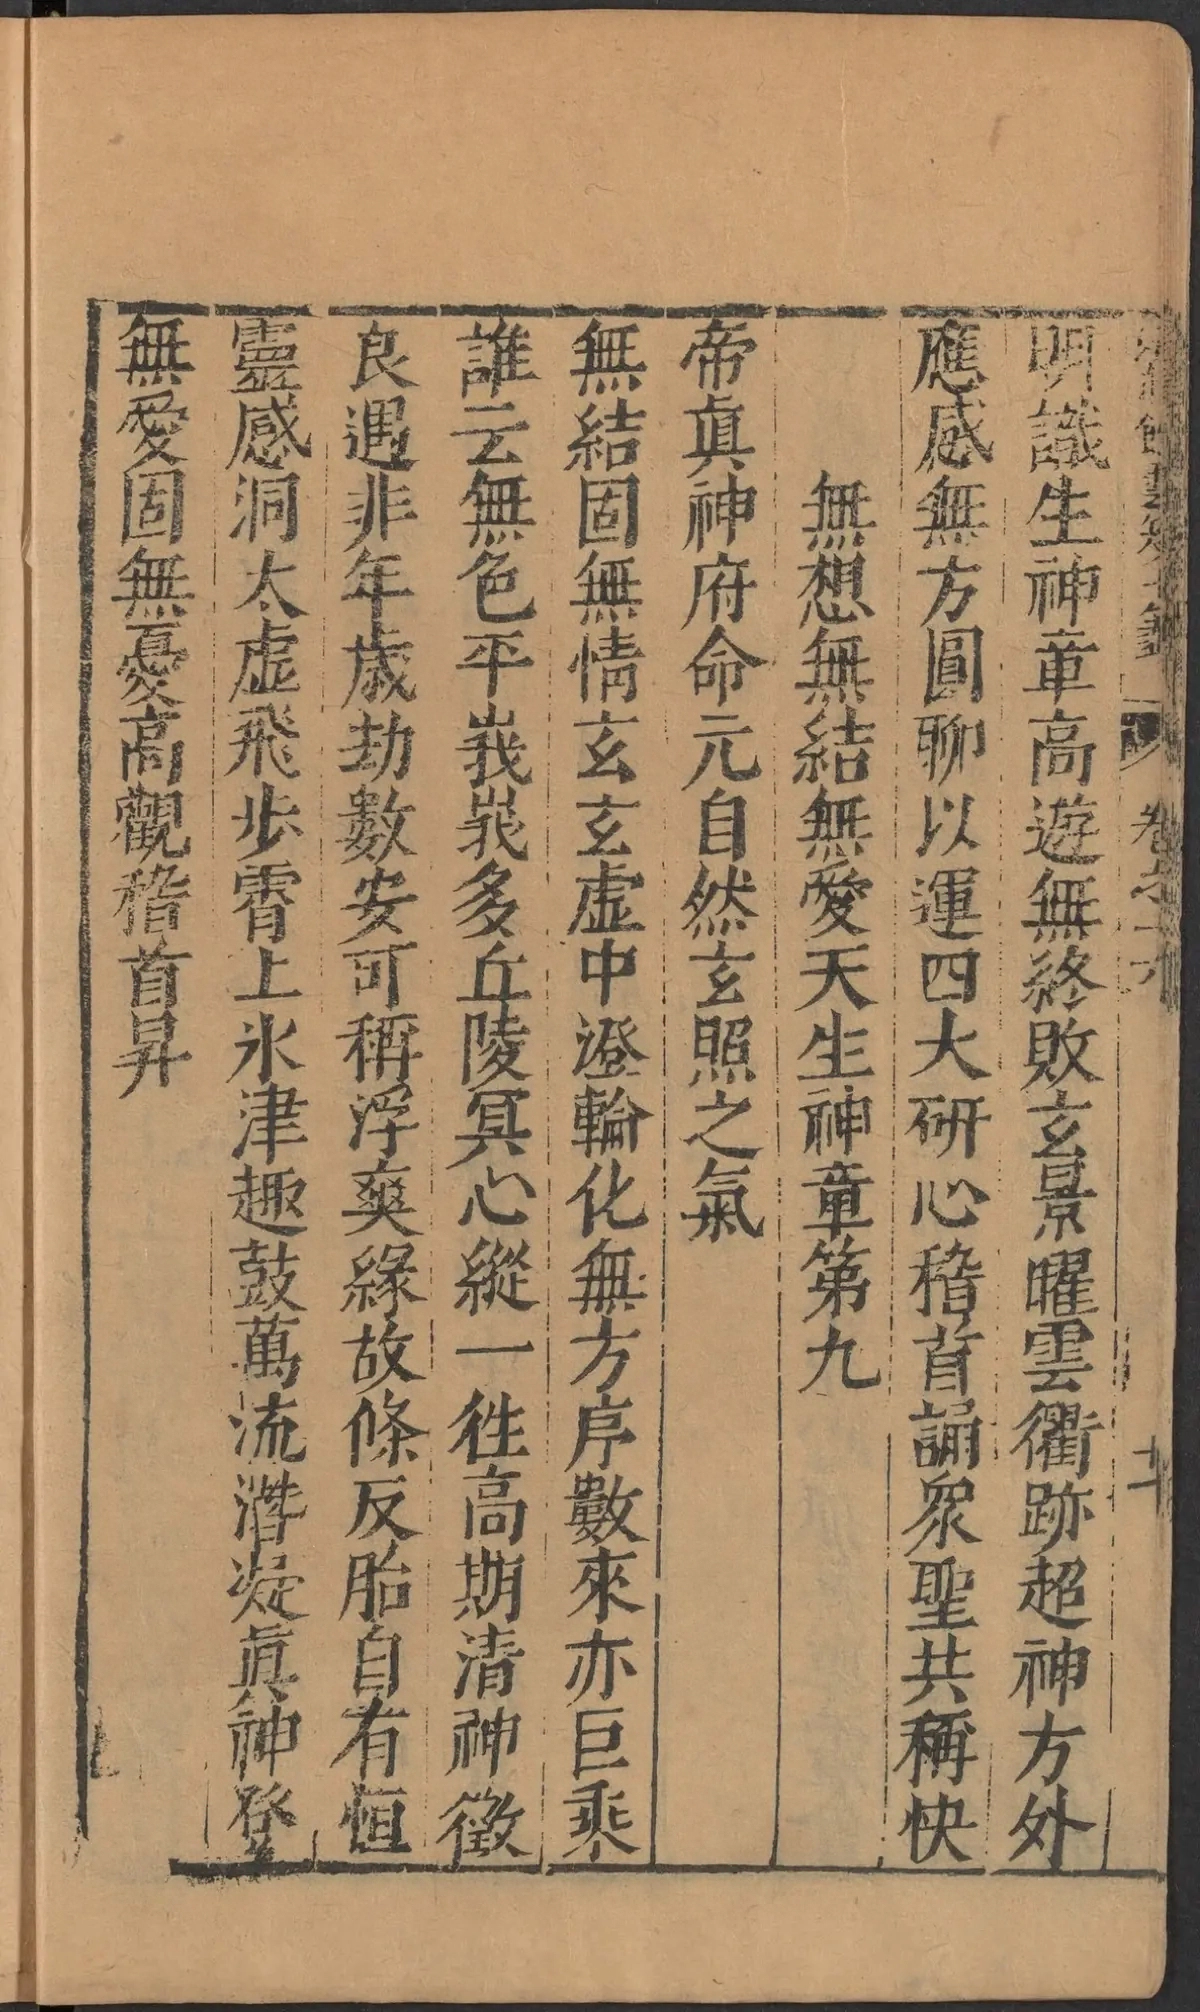 明識生神章高遊無終敗玄景曜雲衢跡超神方外
應感無方圓聊以運四大研心稽首誦衆聖共稱快
無想無結無愛天生神章第九
帝真神府命元自然玄照之氣
無結固無情玄玄虛中澄輪化無方序數來亦巨乘
誰云無色平峩峩多丘陵冥心縱一徃高期清神徵
良遇非年歲劫數安可稱浮爽緣故條反胎自有恒
靈感洞太虛飛步霄上氷津趣鼓萬流潛凝真神登
無愛固無憂高觀稽首昇